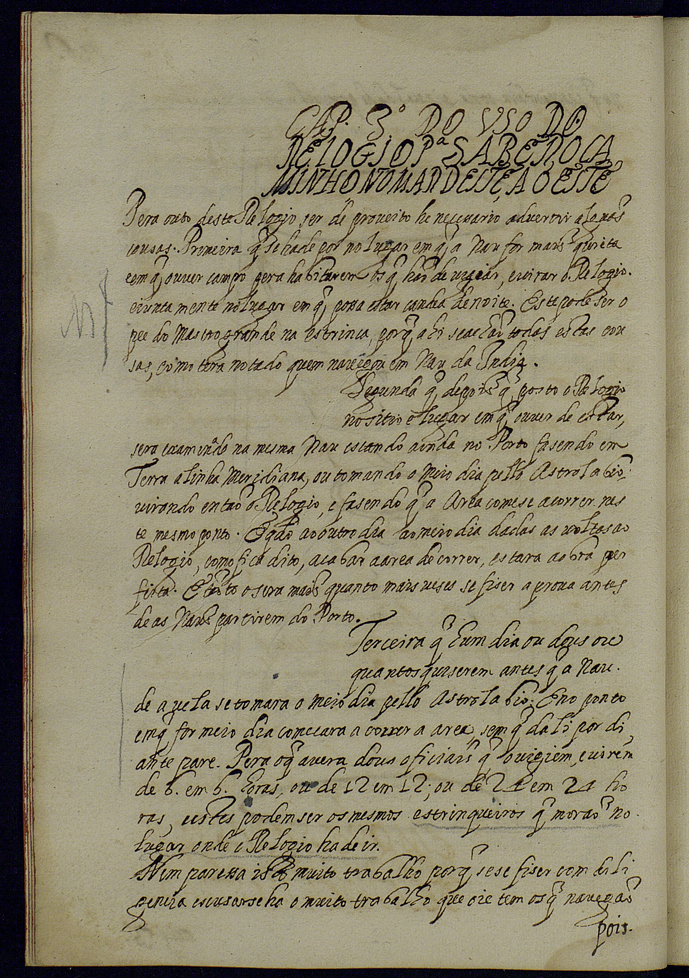 CAP. 3º DO VSO DO
RELOGIO Pª SABER O CA
MINHO NO MAR DESTE, A OESTE
Pera outo deste Relogio ser de proueito he necessario aduertir alguãs
cousas. Primeira q̃ se ha de por no lugar em q̃ a Nau for mais quieta
e em q̃ ouuer campo pera habitarem os q̃ haõ de uegiar, e uirar o Relogio.
e iuntamente no lugar em q̃ possa estar candea de noite. Este pode ser o
pee do Mastro grande na estrinca, porq̃ ahi se achaõ todas estas cou
sas, como tera notado quem nauegou em Nau da India.
Segunda q̃ depois q̃ posto o Relogio
no sitio e lugar em q̃ ouuer de estar,
sera examinado na mesma Nau estando ainda no Porto fasendo em
Terra a linha Meridiana, ou tomando o Meio dia pello Astrolabio
uirando entaõ o Relogio, e fasendo q̃ a Area comese a correr nes
te mesmo ponto. E q̃do ao outro dia ao meio dia dadas as uoltas ao
Relogio, como fica dito, acabar a area de correr, estara a obra per
feita. E tanto o sera mais quanto mais ueses se fiser a proua antes
de as Naus partirem do Porto.
Terceira q̃ hum dia ou dous ou
quantos quiserem antes q̃ a Nau
de a uela se tomara o meio dia pello Astrolabio; E no ponto
em q̃ for meio dia comesara a correr a area, sem q̃ dali por di
ante pare. Pera o q̃ auera dous officiais q̃ o uigiem, e uirem
de 6. em 6. horas, ou de 12 em 12; ou de 24 em 24 ho
ras, e estes podem ser os mesmos estrinqueiros q̃ moraõ no
lugar onde o Relogio ha de ir.
Nem paressa isto muito trabalho porq̃ se se fiser com dili
gencia escusarseha o muito trabalho que oie tem os q̃ nauegaõ
pois.